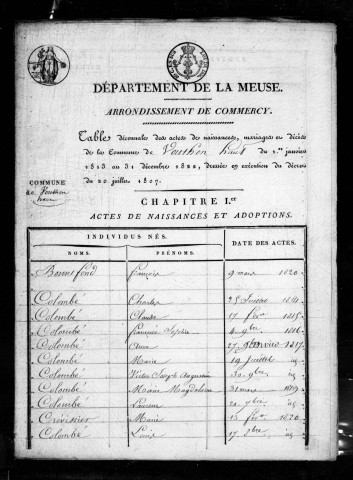 DÉPARTEMENT DE LA MEUSE.
ARRONDISSEMENT DE COMMERCY.
Tables décennales des actes de naissances, mariages et décès
de la Commune de Vouthon haut du 1.er janvier
1813 au 31 décembre 1822, dressée en exécution du décret
du 20 juillet 1807.
COMMUNE
de Vouthon
haut
CHAPITRE I.er
ACTES DE NAISSANCES ET ADOPTIONS.
INDIVIDUS NÉS.
DATE DES ACTES.
NOMS.
PRÉNOMS.
Bonnefond François 9 mars 1820
Colombé Charles 1814
Colombé Claude 17 fév. 1815
Colombé Françoise Sophie 4 9bre 1816
Colombé 1817
Colombé Marie 19 juillet
Colombé Victor Joseph 30 9bre
Colombé Marie Magdeleine 31 mars 1819
Colombé 20 9bre
Marie 15 fév. 1820
Colombé Louis 17